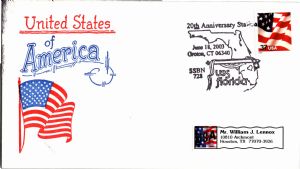 United States
of
America
20th Anniversary Sta
June 18, 2003
Groton, CT 06340
SSBN
728
USS
florida
37 USA
Mr. William J. Lennox
10810 Archmont
Houston, TX 77070-3926